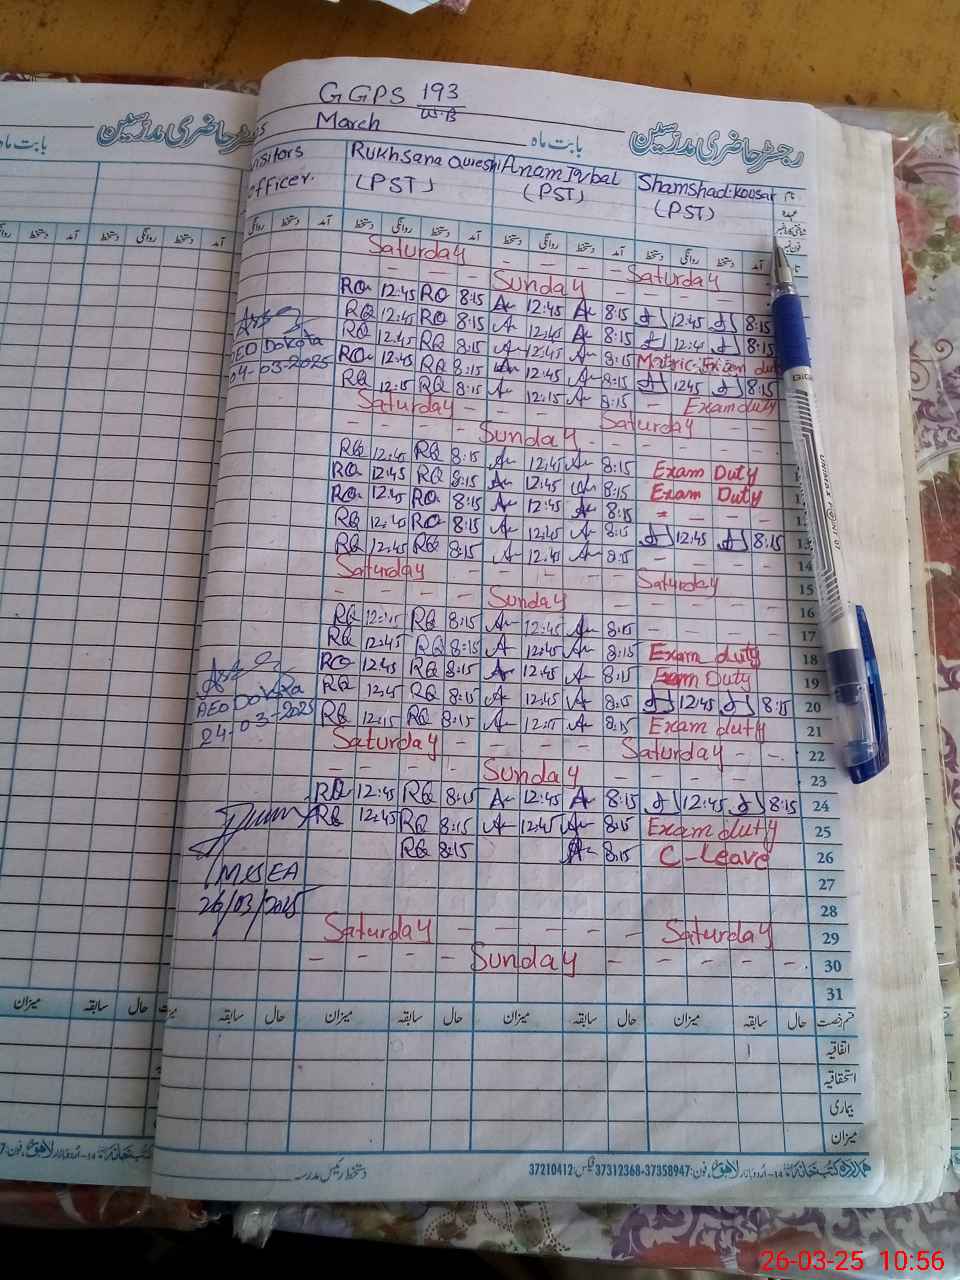 GGPS 193
W.B
March
بابت ماہ
رجسٹر حاضری مدرسین
officer.
Rukhsana Qureshi Anam Iqbal Shamshad Koosar
(PST) (PST) (PST)
آمد دستخط روانگی دستخط آمد دستخط روانگی دستخط آمد دستخط روانگی دستخط
Saturday - - - - Saturday - -
- - - - Sunday - - - - -
RQ 12:45 RQ 8:15 A 12:45 A 8:15 12:45 8:15
RQ 12:45 RQ 8:15 A 12:45 A 8:15 12:45 8:15
AEO Dokota
RQ 12:45 RQ 8:15 A 12:45 A 8:15 Matric Exam
04-03-2025
RQ 12:45 RQ 8:15 A 12:45 A 8:15 1245 8:15
RQ 12:15 RQ 8:15 A 12:15 A 8:15 - Exam duty
Saturday - - - - Saturday - -
- - - - Sunday - - - - -
RQ 12:45 RQ 8:15 A 12:45 A 8:15 Exam Duty
RQ 12:45 RQ 8:15 A 12:45 A 8:15 Exam Duty
RQ 12:45 RQ 8:15 A 12:45 A 8:15 - - - - 12
RQ 12:45 RQ 8:15 A 12:45 A 8:15 12:45 8:15 13
RQ 12:45 RQ 8:15 A 12:45 A 8:15 - - - - 14
Saturday - - - - Saturday 15
- - - - Sunday - - - - 16
RQ RQ 8:15 A 12:45 A 8:15 - - - - 17
RQ 12:45 RQ 8:15 A 12:45 A 8:15 Exam duty 18
RQ 12:45 RQ 8:15 A 12:45 A 8:15 Exam Duty 19
AEO Dokota
RQ 12:45 RQ 8:15 A 12:45 A 8:15 12:45 8:15 20
24-03-2025
RQ 12:15 RQ 8:15 A A 8:15 Exam duty 21
Saturday - - - - Saturday - - 22
- - - - Sunday - - - - 23
RQ 12:45 RQ 8:15 A 12:45 A 8:15 12:45 8:15 24
RQ 12:45 RQ 8:15 A 12:45 A 8:15 Exam duty 25
RQ 8:15 A 8:15 C-Leave 26
MEA
27
26/03/2025
28
Saturday - - - - - Saturday 29
- - - - Sunday - - - - - 30
31
حال سابقہ میزان حال سابقہ میزان حال سابقہ میزان حال سابقہ
اتفاقیہ
استحقاقیہ
بیماری
میزان
37210412 37312368-37358947
26-03-25 10:56